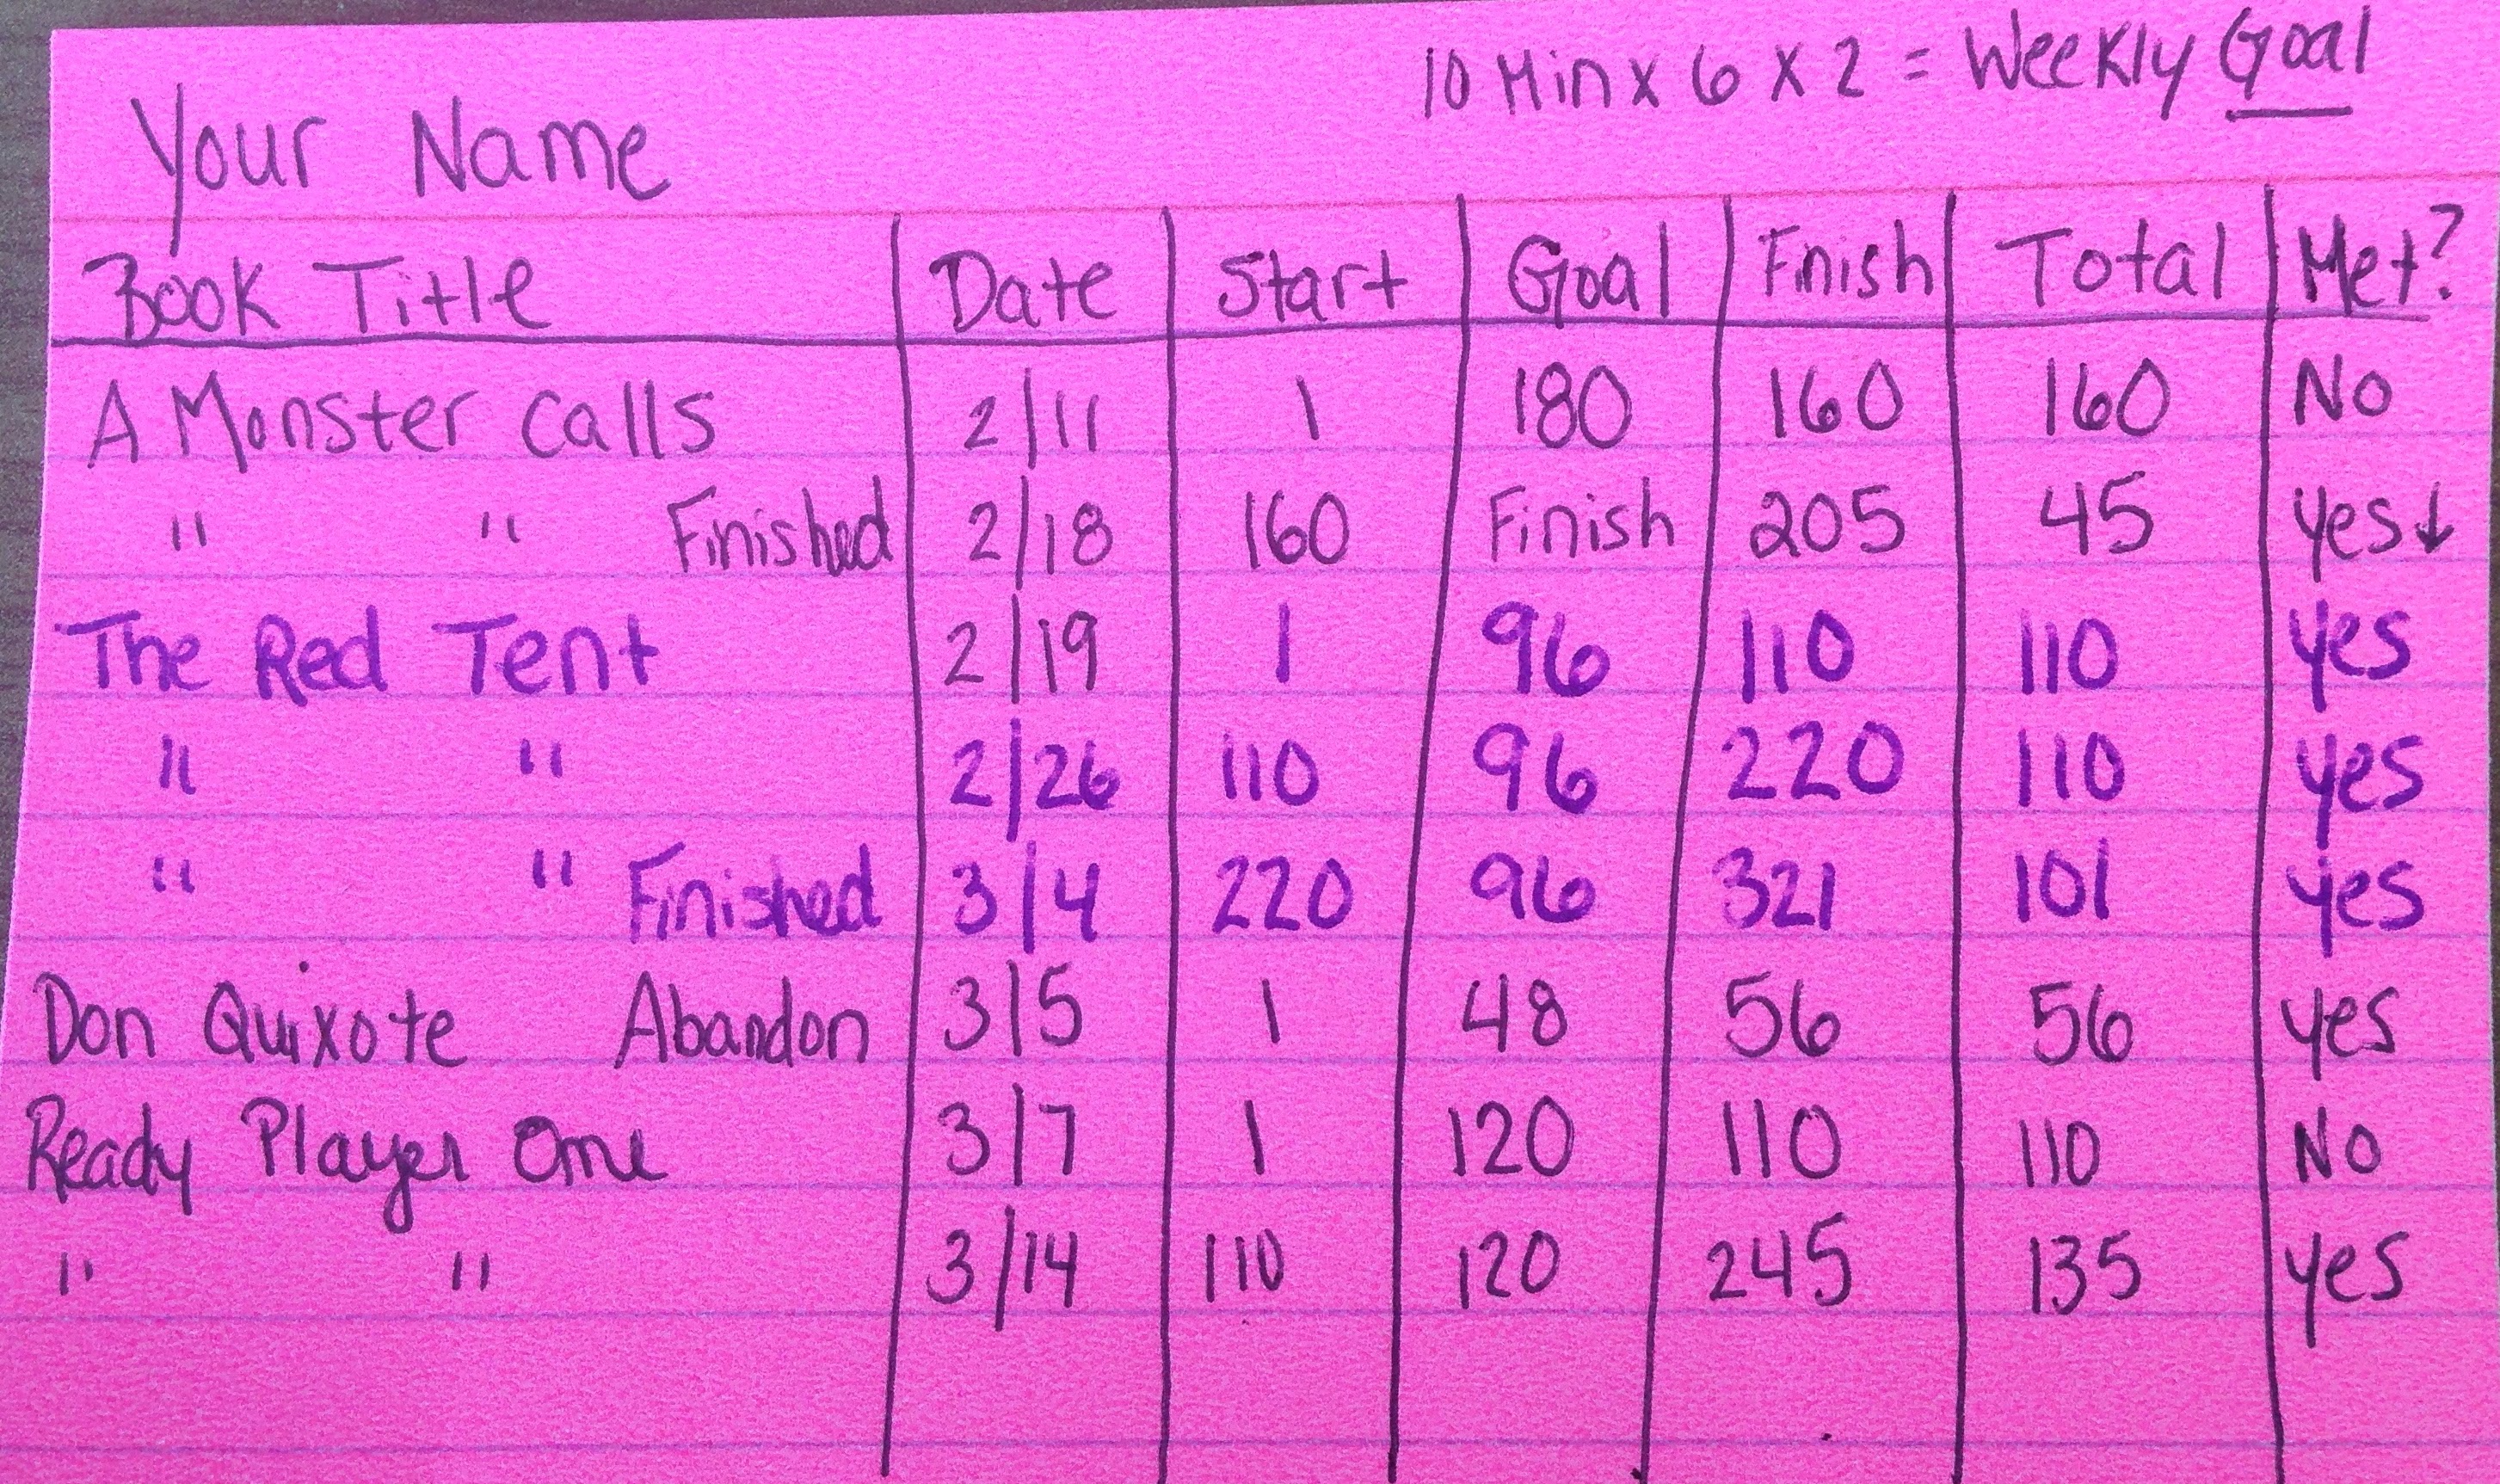 10 Min x 6 x 2 = Weekly Goal
Your Name
Book Title Date Start Goal Fnish Total Met?
A Monster Calls 2/11 1 180 160 160 No
" " Finished 2/18 160 Finish 205 45 yes↓
The Red Tent 2/19 1 96 110 110 yes
" " 2/26 110 96 220 110 yes
" " Finished 3/4 220 96 321 101 yes
Don Quixote Abandon 3/5 1 48 56 56 yes
Ready Player One 3/7 1 120 110 110 No
" " 3/14 110 120 245 135 yes